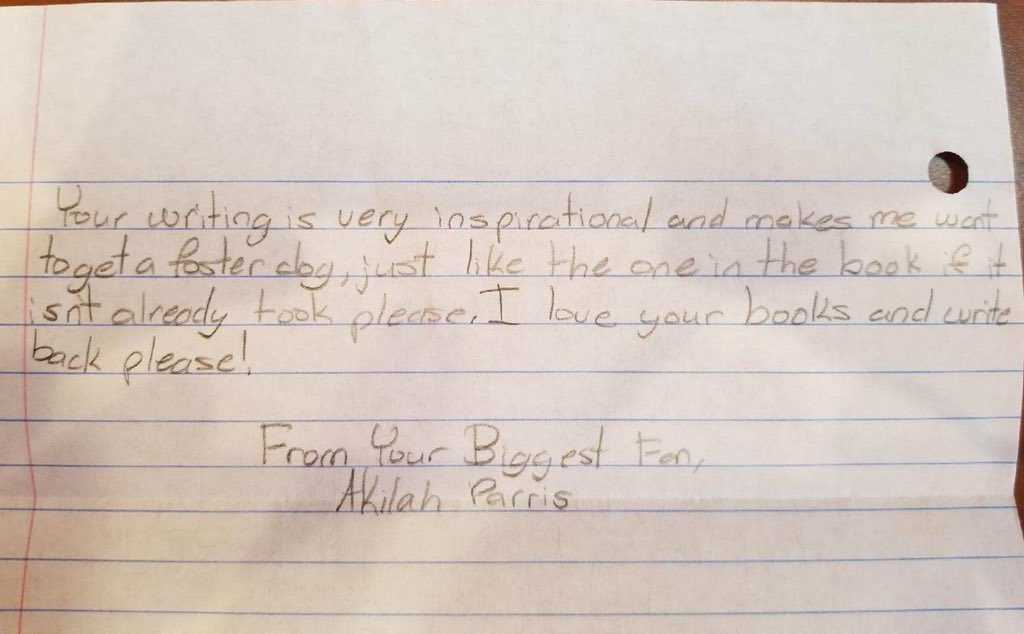 Your writing is very inspirational and makes me want
to get a foster dog, just like the one in the book if it
isn't already took please. I love your books and write
back please!
From Your Biggest Fan,
Akilah Parris